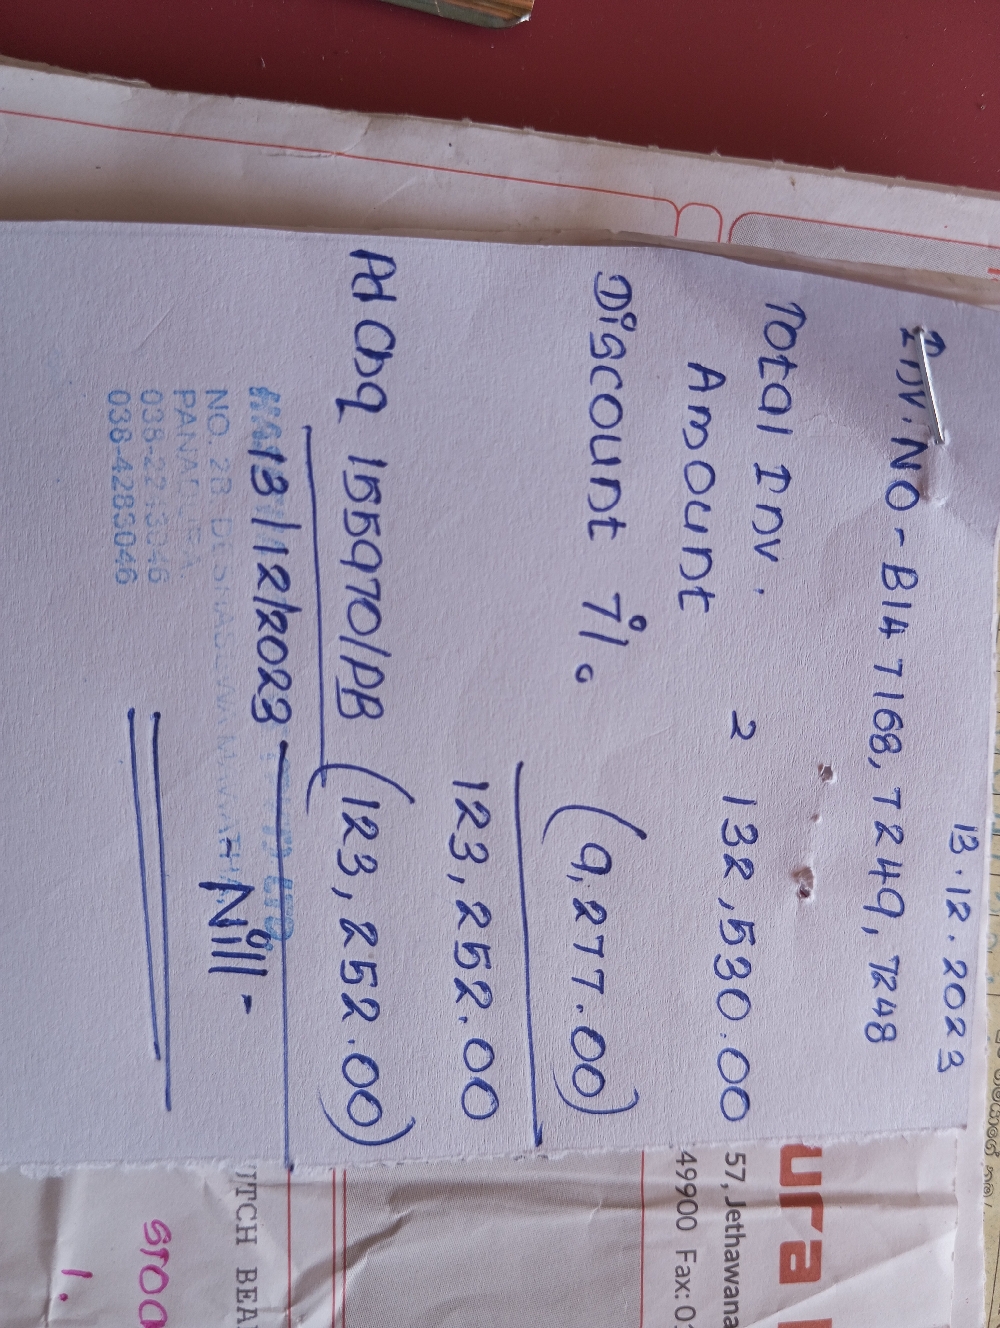 13.12.2023
Inv. NO - B14 7168, 7249, 7248
Total Inv. Amount 2 132,530.00
Discount 7%. (9,277.00)
123,252.00
Pd Chq 155970/PB (123,252.00)
13/12/2023
- Nill -
NO. 2B
PANA
038-4283046
ura
57, Jethawana
49900 Fax: 01
UTCH BEA
1.